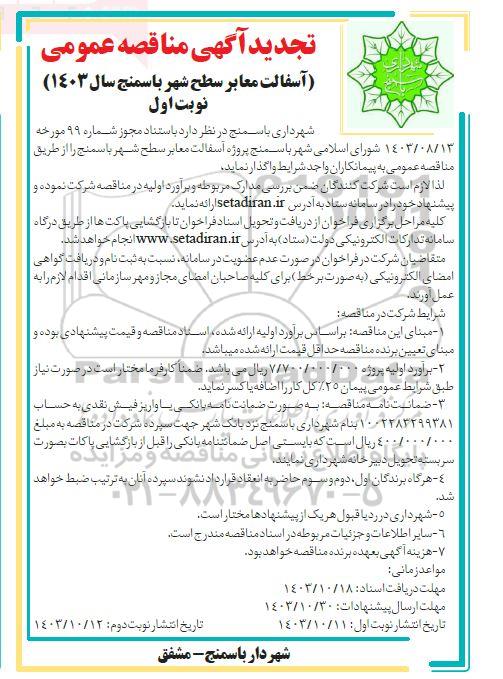 تجدید آگهی مناقصه عمومی
(آسفالت معابر سطح شهر باسمنج سال ۱۴۰۳)
نوبت اول
شهرداری باسمنج در نظر دارد باستناد مجوز شماره ۹۹ مورخه
۱۴۰۳/۰۸/۱۳ شورای اسلامی شهر باسمنج پروژه آسفالت معابر سطح شهر باسمنج را از طریق
مناقصه عمومی به پیمانکاران واجد شرایط واگذار نماید.
لذا لازم است شرکت کنندگان ضمن بررسی مدارک مربوطه و برآورد اولیه در مناقصه شرکت نموده و
پیشنهاد خود را در سامانه ستاد به آدرس setadiran.ir ارائه نماید.
کلیه مراحل برگزاری فراخوان از دریافت و تحویل اسناد فراخوان تا بازگشایی پاکت ها از طریق درگاه
سامانه تدارکات الکترونیکی دولت (ستاد) به آدرس www.setadiran.ir انجام خواهد شد.
متقاضیان شرکت در فراخوان در صورت عدم عضویت در سامانه، نسبت به ثبت نام و دریافت گواهی
امضای الکترونیکی (به صورت بر خط) برای کلیه صاحبان امضای مجاز و مهر سازمانی اقدام لازم را به
عمل آورند.
شرایط شرکت در مناقصه:
۱- مبنای این مناقصه: بر اساس برآورد اولیه ارائه شده، اسناد مناقصه و قیمت پیشنهادی بوده و
مبنای تعیین برنده مناقصه حداقل قیمت ارائه شده میباشد.
۲- برآورد اولیه پروژه ۷/۷۰۰/۰۰۰/۰۰۰ ریال می باشد. ضمناً کارفرما مختار است در صورت نیاز
طبق شرایط عمومی پیمان ۲۵٪ کل کار را اضافه یا کسر نماید.
۳- ضمانت نامه مناقصه: به صورت ضمانت نامه بانکی یا واریز فیش نقدی به حساب
۱۰۰۲۲۸۳۲۹۹۳۸۱ بنام شهرداری باسمنج نزد بانک شهر جهت سپرده شرکت در مناقصه به مبلغ
۴۰۰/۰۰۰/۰۰۰ ریال است که بایستی اصل ضمانتنامه بانکی را قبل از بازگشایی پاکات بصورت
سربسته تحویل دبیرخانه شهرداری نمایند.
۴- هرگاه برندگان اول، دوم و سوم حاضر به انعقاد قرارداد نشوند سپرده آنان به ترتیب ضبط خواهد
شد.
۵- شهرداری در رد یا قبول هر یک از پیشنهادها مختار است.
۶- سایر اطلاعات و جزئیات مربوطه در اسناد مناقصه مندرج است.
۷- هزینه آگهی بعهده برنده مناقصه خواهد بود.
مواعد زمانی:
مهلت دریافت اسناد: ۱۴۰۳/۱۰/۱۸
مهلت ارسال پیشنهادات: ۱۴۰۳/۱۰/۳۰
تاریخ انتشار نوبت اول: ۱۴۰۳/۱۰/۱۱ تاریخ انتشار نوبت دوم: ۱۴۰۳/۱۰/۱۲
شهردار باسمنج - مشفق
۰۲۱-۸۸۳۴۹۶۷۰-۵